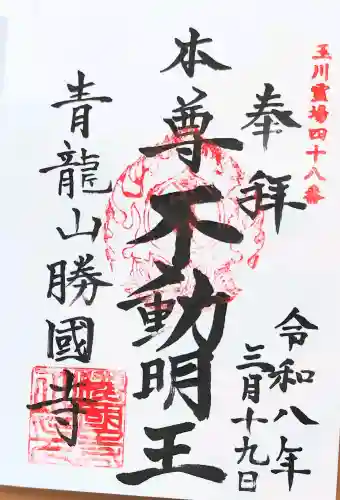 玉川霊場四十八番
奉拝
令和八年
三月十九日
本尊不動明王
青龍山勝國寺